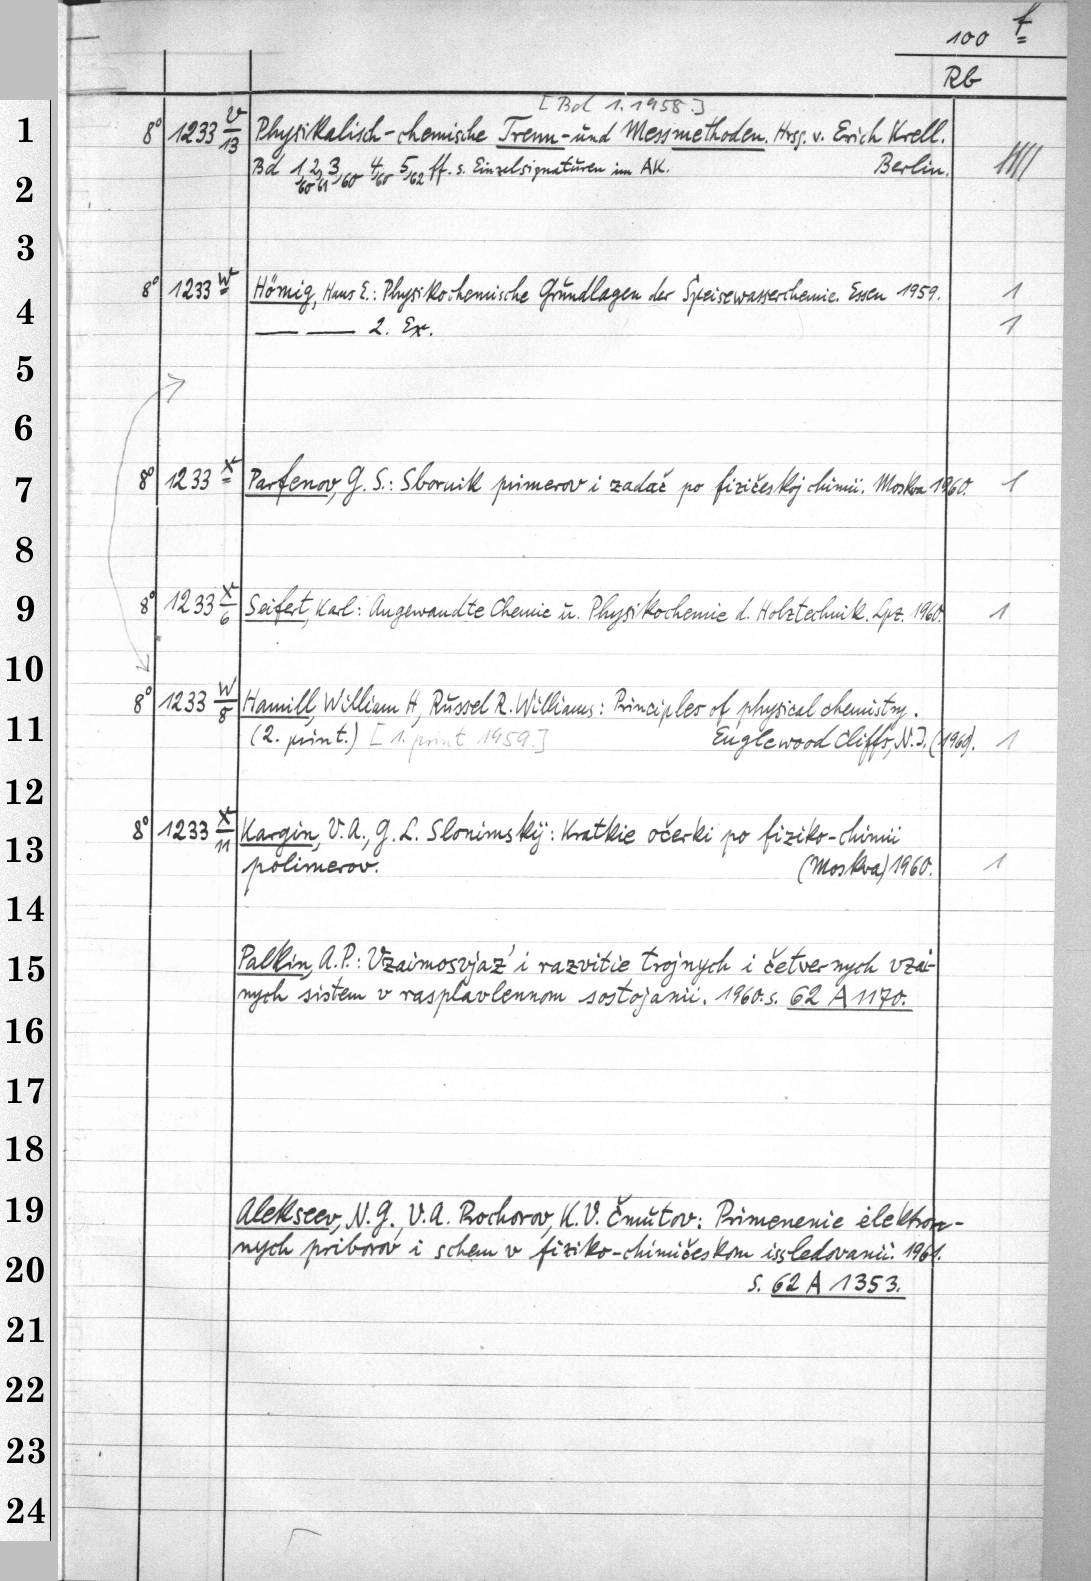 100 f
Rb
[Bd 1. 1958.]
1 8° 1233 v/13 Physikalisch-chemische Trenn- und Messmethoden. Hrsg. v. Erich Krell.
2 Bd 1/60 2/61 3/60 4/60 5/62 ff. s. Einzelsignaturen im AK. Berlin. IIIII
3
4 8° 1233 w Hömig, Hans E.: Physikochemische Grundlagen der Speisewasserchemie. Essen 1959. 1
— — 2. Ex. 1
5
6
7 8° 1233 x Parfenov, G. S.: Sbornik primerov i zadač po fizičeskoj chimii. Moskva 1960. 1
8
9 8° 1233 x/6 Seifert, Karl: Angewandte Chemie u. Physikochemie d. Holztechnik. Lpz. 1960. 1
10
8° 1233 w/8 Hamill, William H, Russel R. Williams: Principles of physical chemistry.
11 (2. print.) [1. print 1959.] Englewood Cliffs, N.J. (1960). 1
12
8° 1233 x/11 Kargin, V. A., G. L. Slonimskij: Kratkie očerki po fiziko-chimii
13 polimerov. (Moskva) 1960. 1
14
15 Palkin, A. P.: Vzaimosvjaz' i razvitie trojnych i četvernych vzai-
nych sistem v rasplavlennom sostojanii. 1960. s. 62 A 1170.
16
17
18
19 Alekseev, N. G., V. A. Prochorov, K. V. Čmutov: Primenenie ėlektron-
20 nych priborov i schem v fiziko-chimičeskom issledovanii. 1961.
s. 62 A 1353.
21
22
23
24